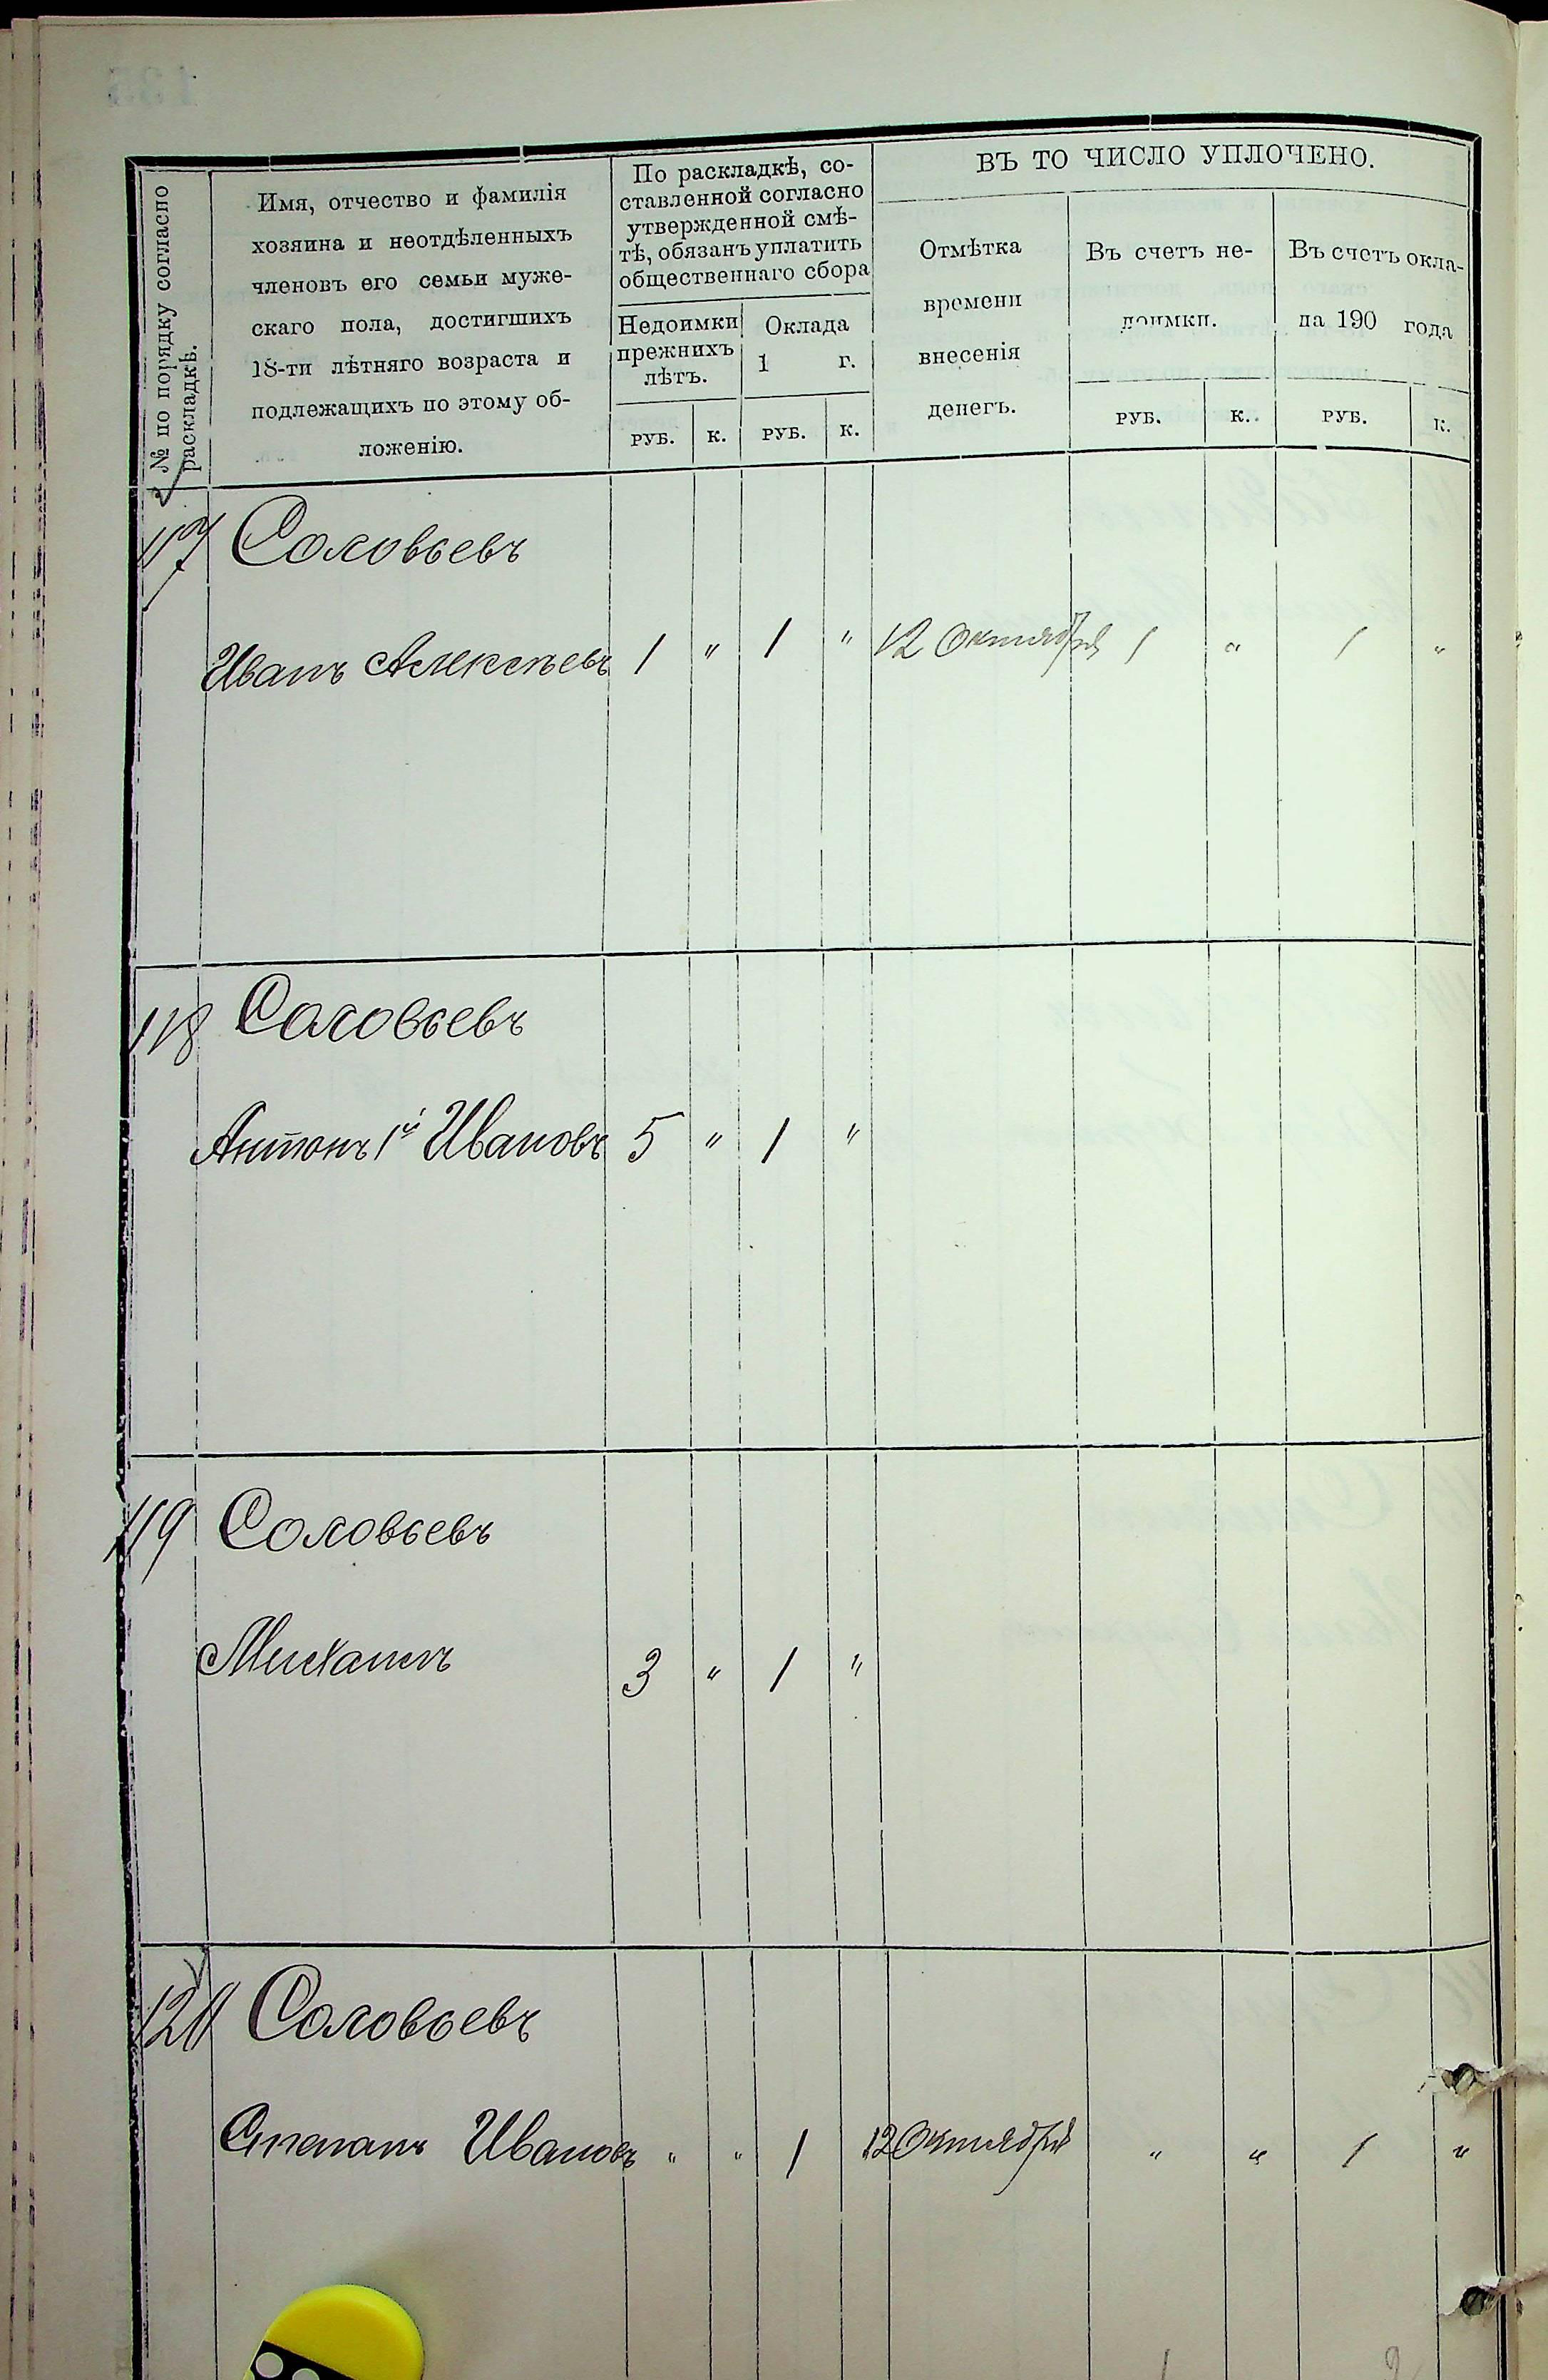 № по порядку согласно
раскладкѣ.
Имя, отчество и фамилія
хозяина и неотдѣленныхъ
членовъ его семьи муже-
скаго пола, достигшихъ
18-ти лѣтняго возраста и
подлежащихъ по этому об-
ложенію.
По раскладкѣ, со-
ставленной согласно
утвержденной смѣ-
тѣ, обязанъ уплатить
общественнаго сбора
Недоимки
прежнихъ
лѣтъ.
Оклада
1 г.
РУБ. К. РУБ. К.
ВЪ ТО ЧИСЛО УПЛОЧЕНО.
Отмѣтка
времени
внесенія
денегъ.
Въ счетъ не-
доимки.
Въ счетъ окла-
да 190 года
РУБ. К. РУБ. К.
117 Соловьевъ
Иванъ Алексѣевъ 1 " 1 " 12 Октября 1 " 1 "
118 Соловьевъ
Антонъ 1й Ивановъ 5 " 1 "
119 Соловьевъ
Михаилъ 3 " 1 "
120 Соловьевъ
Степанъ Ивановъ " " 1 12 Октября " " 1 "